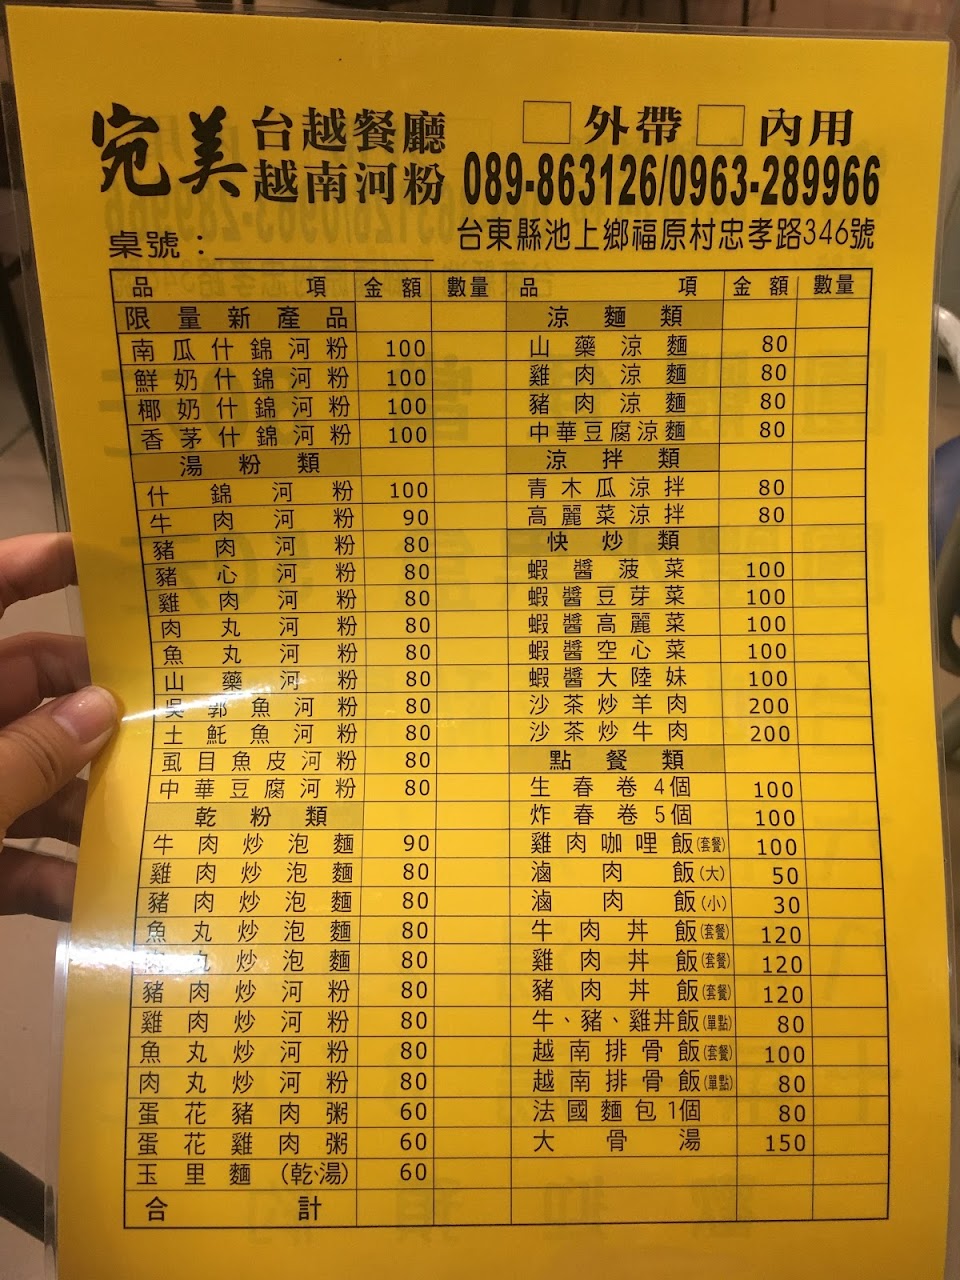 完美 台越餐廳 越南河粉
□外帶 □內用
089-863126/0963-289966
台東縣池上鄉福原村忠孝路346號
桌號：
品項 金額 數量
限量新產品
南瓜什錦河粉 100
鮮奶什錦河粉 100
椰奶什錦河粉 100
香茅什錦河粉 100
湯粉類
什錦河粉 100
牛肉河粉 90
豬肉河粉 80
豬心河粉 80
雞肉河粉 80
肉丸河粉 80
魚丸河粉 80
山藥河粉 80
吳郭魚河粉 80
土魠魚河粉 80
虱目魚皮河粉 80
中華豆腐河粉 80
乾粉類
牛肉炒泡麵 90
雞肉炒泡麵 80
豬肉炒泡麵 80
魚丸炒泡麵 80
肉丸炒泡麵 80
豬肉炒河粉 80
雞肉炒河粉 80
魚丸炒河粉 80
肉丸炒河粉 80
蛋花豬肉粥 60
蛋花雞肉粥 60
玉里麵（乾、湯） 60
合計
品項 金額 數量
涼麵類
山藥涼麵 80
雞肉涼麵 80
豬肉涼麵 80
中華豆腐涼麵 80
涼拌類
青木瓜涼拌 80
高麗菜涼拌 80
快炒類
蝦醬菠菜 100
蝦醬豆芽菜 100
蝦醬高麗菜 100
蝦醬空心菜 100
蝦醬大陸妹 100
沙茶炒羊肉 200
沙茶炒牛肉 200
點餐類
生春卷4個 100
炸春卷5個 100
雞肉咖哩飯(套餐) 100
滷肉飯(大) 50
滷肉飯(小) 30
牛肉丼飯(套餐) 120
雞肉丼飯(套餐) 120
豬肉丼飯(套餐) 120
牛、豬、雞丼飯(單點) 80
越南排骨飯(套餐) 100
越南排骨飯(單點) 80
法國麵包1個 80
大骨湯 150